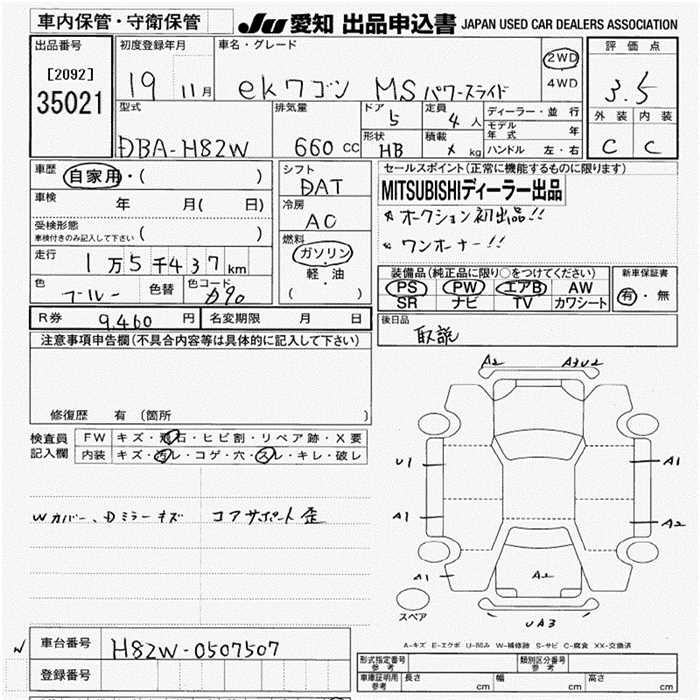 車内保管・守衛保管 JU 愛知 出品申込書 JAPAN USED CAR DEALERS ASSOCIATION
出品番号 初度登録年月 車名・グレード 評価点
[2092] 35021 19 11月 ekワゴン MS パワースライド 2WD 4WD 3.5
型式 排気量 ドア 定員 ディーラー・並行 外装 内装
DBA-H82W 660 CC 5 4人 モデル年式
形状 HB 積載 x kg ハンドル 左・右 C C
車歴 自家用・( ) シフト DAT セールスポイント(正常に機能するものに限ります)
車検 年 月( 日) 冷房 AC MITSUBISHIディーラー出品
オークション初出品!!
受検形態 車検付きのみ記入して下さい ( ) 燃料 ガソリン・軽油 ( ) ワンオーナー!!
走行 1万5千437km
装備品(純正品に限り○をつけてください) 新車保証書
色 ブルー 色替 色コード PS PW エアB AW 有・無
SR ナビ TV カワシート
R券 9,460円 名変期限 月 日 後日品
取説
注意事項申告欄(不具合内容等は具体的に記入して下さい)
修復歴 有 (箇所 )
検査員記入欄 FW キズ・飛石・ヒビ割・リペア跡・X要
内装 キズ・汚レ・コゲ・穴・スレ・キレ・破レ
Wカバー、Dミラーキズ コアサポート歪
A2 A3U2
U1 A1
A1 A2
A1 A2
スペア UA3
A-キズ E-エクボ U-凹み W-補修跡 S-サビ C-腐食 XX-交換済
車台番号 H82W-0507507
登録番号
形式指定番号 参考 類別区分番号 参考
車庫証明用 参考 長さ cm 幅 cm 高さ cm